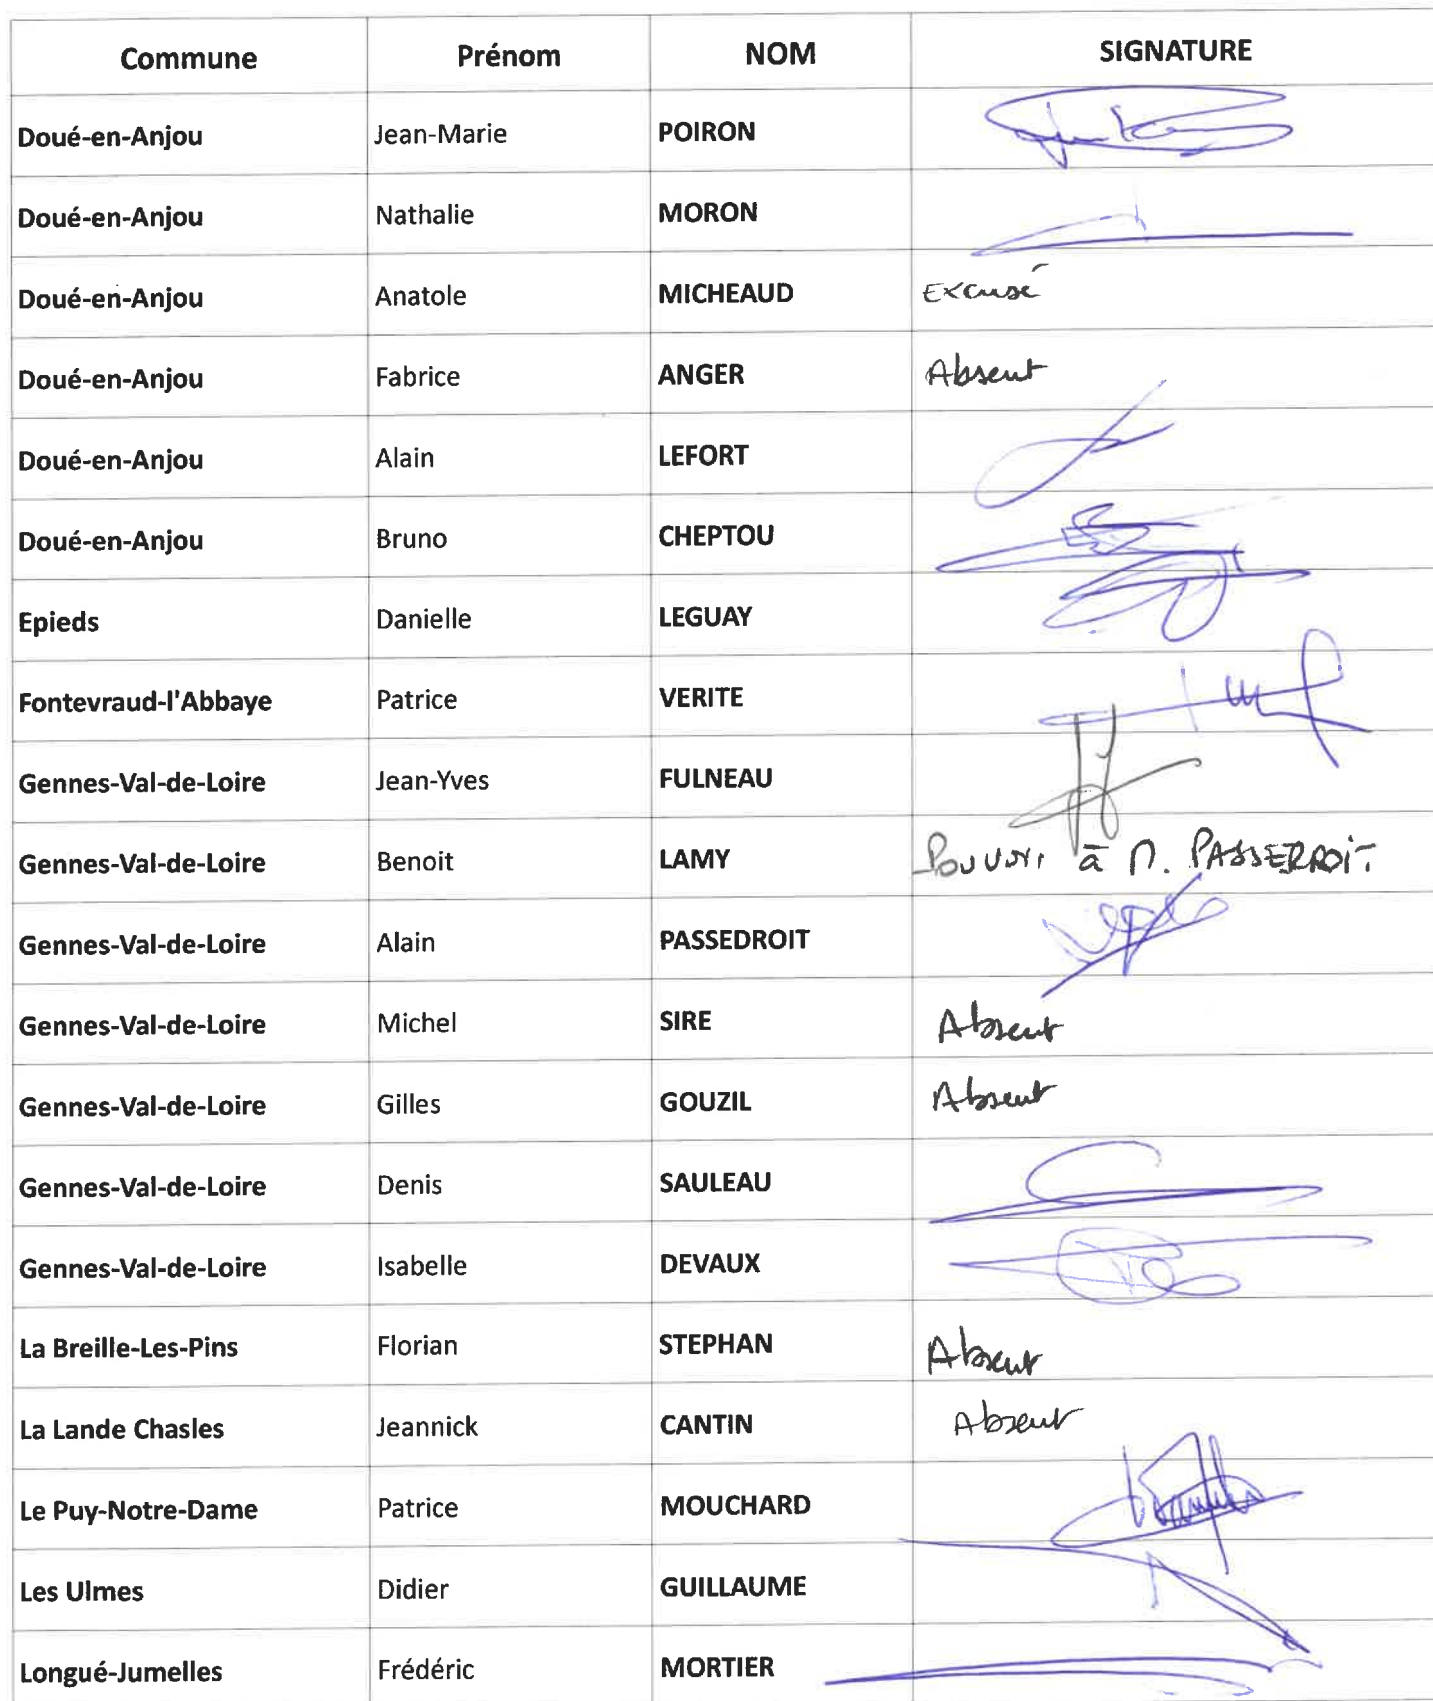 Commune Prénom NOM SIGNATURE
Doué-en-Anjou Jean-Marie POIRON
Doué-en-Anjou Nathalie MORON
Doué-en-Anjou Anatole MICHEAUD Excusé
Doué-en-Anjou Fabrice ANGER Absent
Doué-en-Anjou Alain LEFORT
Doué-en-Anjou Bruno CHEPTOU
Epieds Danielle LEGUAY
Fontevraud-l'Abbaye Patrice VERITE
Gennes-Val-de-Loire Jean-Yves FULNEAU
Gennes-Val-de-Loire Benoit LAMY Pouvoir à M. PASSEDROIT
Gennes-Val-de-Loire Alain PASSEDROIT
Gennes-Val-de-Loire Michel SIRE Absent
Gennes-Val-de-Loire Gilles GOUZIL Absent
Gennes-Val-de-Loire Denis SAULEAU
Gennes-Val-de-Loire Isabelle DEVAUX
La Breille-Les-Pins Florian STEPHAN Absent
La Lande Chasles Jeannick CANTIN Absent
Le Puy-Notre-Dame Patrice MOUCHARD
Les Ulmes Didier GUILLAUME
Longué-Jumelles Frédéric MORTIER